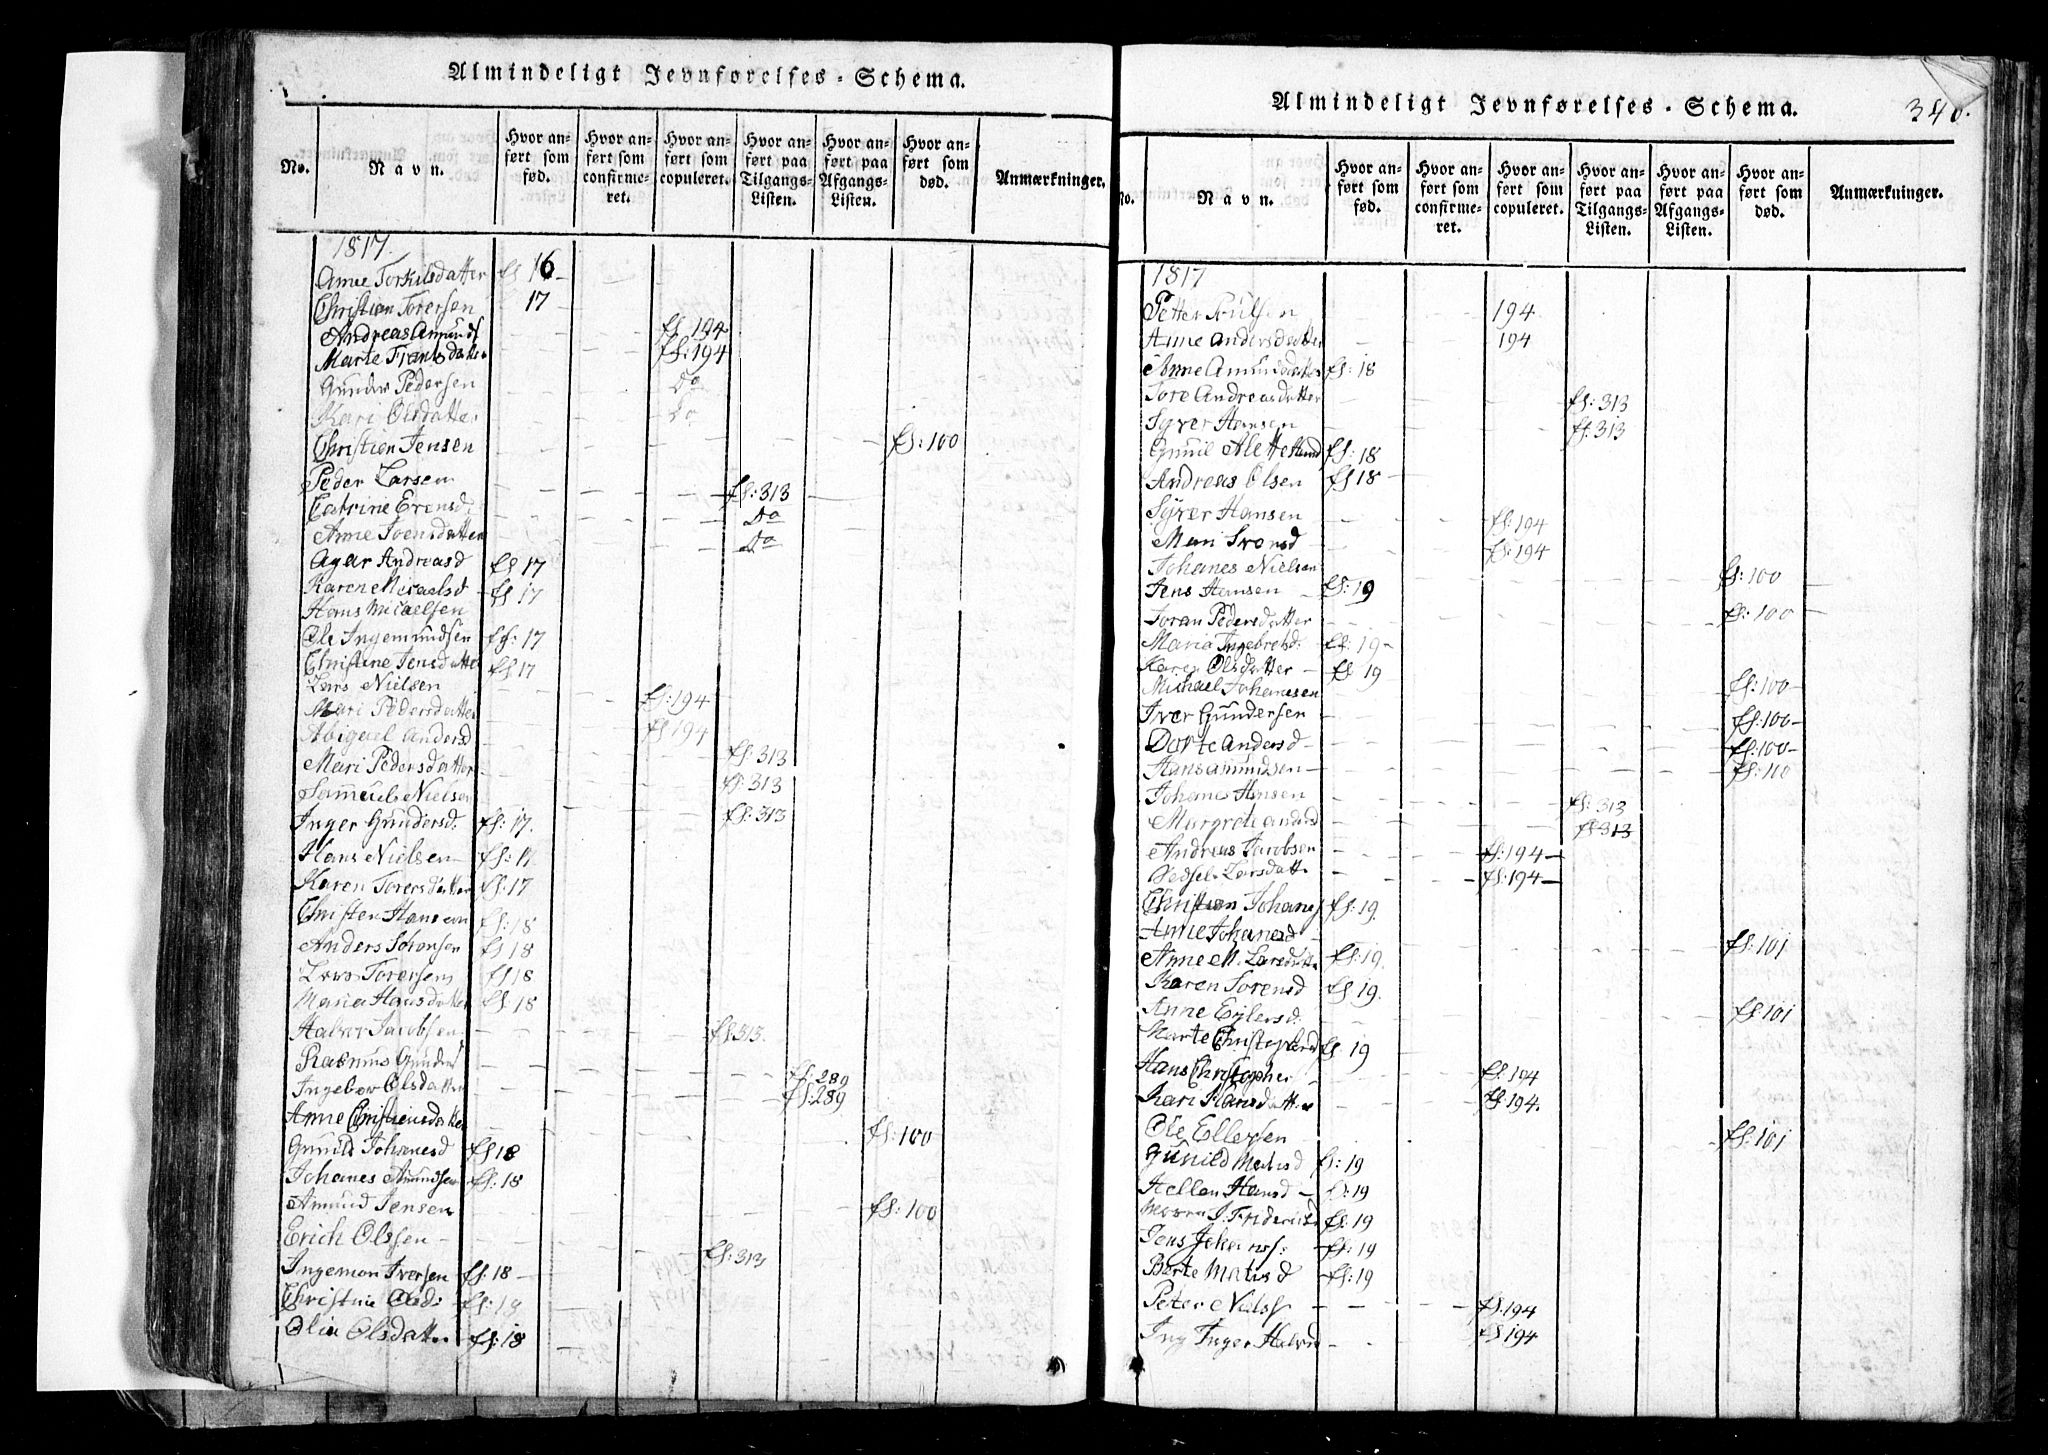 Almindeligt Jevnførelses-Schema.
No.
Navn.
Hvor anført som fød.
Hvor anført som confirmeret.
Hvor anført som copuleret.
Hvor anført paa Tilgangs-Listen.
Hvor anført paa Afgangs-Listen.
Hvor anført som død.
Anmærkninger.
1817.
Anne Torkilsdatter fl 16
Christian Torersen 17
Andreas Amunds fl. 194
Marte Frantsdatter fl: 194
Gunder Pedersen Do
Kari Olsdatter Do
Christian Jensen fl: 100
Peder Larsen fl: 313
Catrine Erensd: Do
Anne Svensdatter Do
Agar Andreasd fl 17
Karen Micaelsd fl 17
Hans Micaelsen
Ole Ingemundsen fl: 17
Christine Jensdatter fl 17
Lars Nielsen fl: 194
Mari Pedersdatter fl 194
Abigael Andersd fl: 313
Mari Pedersdatter fl: 313
Samuel Nielsen fl: 313
Inger Gundersd. fl: 17.
Hans Nielsen fl: 17
Karen Torersdatter fl: 17
Christen Hansen fl: 18
Anders Johansen fl 18
Lars Torersen fl 18
Maria Hansdatter fl. 18
Halvor Jacobsen fl 313.
Rasmus Gunders fl: 289
Ingebor Olsdatter fl: 289
Anne Christiensdatter fl: 100
Gunild Johanesd fl 18
Johanes Amundsen fl: 18
Amund Jensen fl: 100
Erich Olssen fl: 313
Ingemon Iversen fl: 18
Christine Olsd: fl: 18
Olia Olsdatter fl: 18
Almindeligt Jevnførelses-Schema.
340.
No.
Navn.
Hvor anført som fød.
Hvor anført som confirmeret.
Hvor anført som copuleret.
Hvor anført paa Tilgangs-Listen.
Hvor anført paa Afgangs-Listen.
Hvor anført som død.
Anmærkninger.
1817
Petter 194
Anne Andersdatter 194
Anne Amundsdatter fl: 18
Tore Andreasdatter fl: 313
Syver Hansen fl. 313
Alette fl: 18
Andreas Olsen fl 18
Syver Hansen fl: 194
Mari fl: 194
Johanes Nielsen fl: 100
Jens Hansen fl: 19
Joran Pedersdatter fl: 100
Maria Ingebretsd. fl: 19
Karen Olsdatter fl 19
Michael Johannesen fl: 100
Iver Gundersen fl: 100
Dorte Andersd fl: 100
Hans Amundsen fl: 110
Johanes Hansen fl: 313
Margrete Andersd fl 313
Andreas Jacobsen fl: 194
Larsdatt fl: 194
Christian Johanes fl: 19.
Anne Johanesd fl: 101
Anne M. Larsdatter fl: 19.
Karen Sorensd fl: 19.
Anne Eylersd. fl 101
Marte fl. 19
Hans Christopher fl. 194
Kari Hansdatter fl 194.
Ole Ellefsen fl: 101
Gunild Matisd fl: 19
Hellen Hansd fl: 19
fl: 19
Jens Johans: fl: 19
Berte Matisd fl: 19
Peter Nielss fl. 194
Ing Inger Halvord fl 194